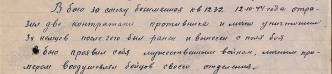 В бою за сопку безымянная кв 1232 12.10.44 года отра-
зил две контратаки противника и лично уничтожил
34 немцев после чего был ранен и вынесен с поля боя
В бою проявил себя мужественным воином, личным при-
мером воодушевлял бойцов своего отделения.